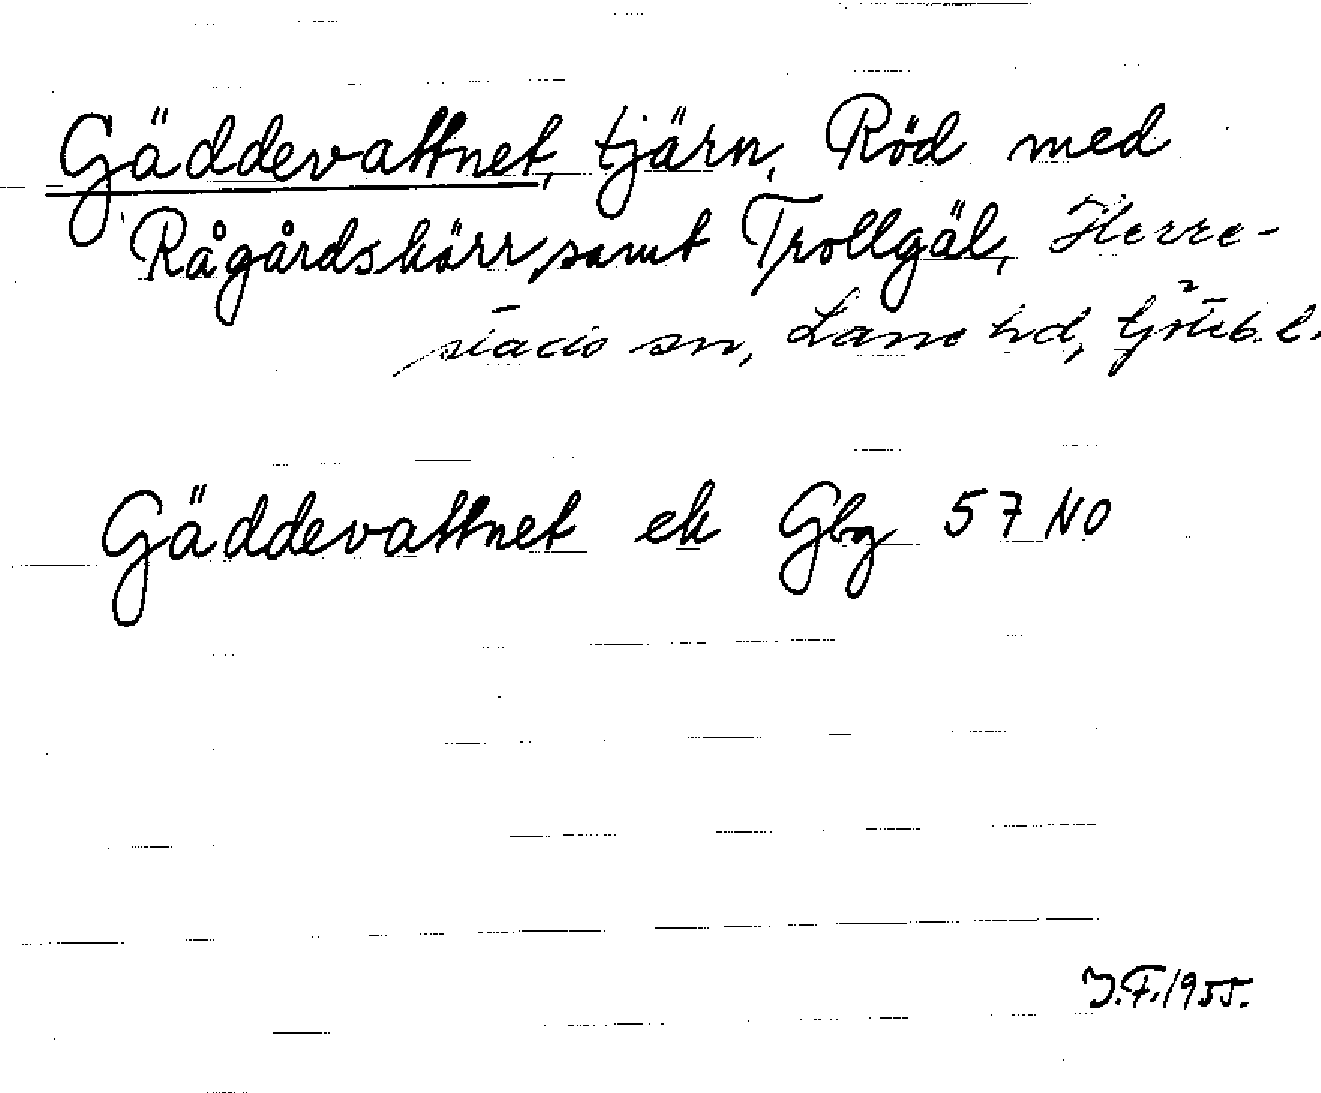 Gäddevattnet, tjärn, Röd med
Rågårdskärr, samt Trollgäl, Herre-
stads sn, Lane hd, Göteb. l.
Gäddevattnet ek Gbg 57 NO
J.F. 1955.